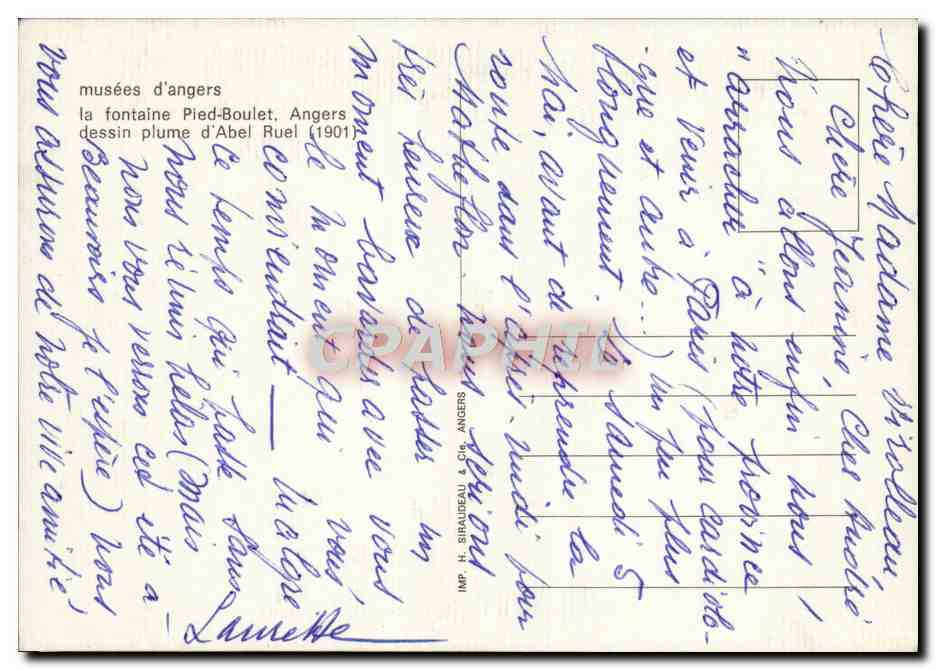 musées d'angers
la fontaine Pied-Boulet, Angers
dessin plume d'Abel Ruel (1901)
IMP. H. SIRAUDEAU & Cie, ANGERS
CPAPHIL
Chère Madame Virolleau,
Chère Jeannine, Cher André
Nous allons enfin nous
"arracher" à notre province
et venir à Paris (pour cardiolo-
gique et autre...) un peu plus
longuement. Le Samedi 5
Mai, avant de reprendre la
route dans l'après-midi pour
nous serions
très heureux de passer un
moment bavards avec vous
le moment qui vous
conviendrait. Malgré
ce temps qui passe sans
nous réunir hélas (mais
nous vous verrons cet été à
Beauvoir je l'espère) nous
vous assurons de notre vive amitié!
Laurette